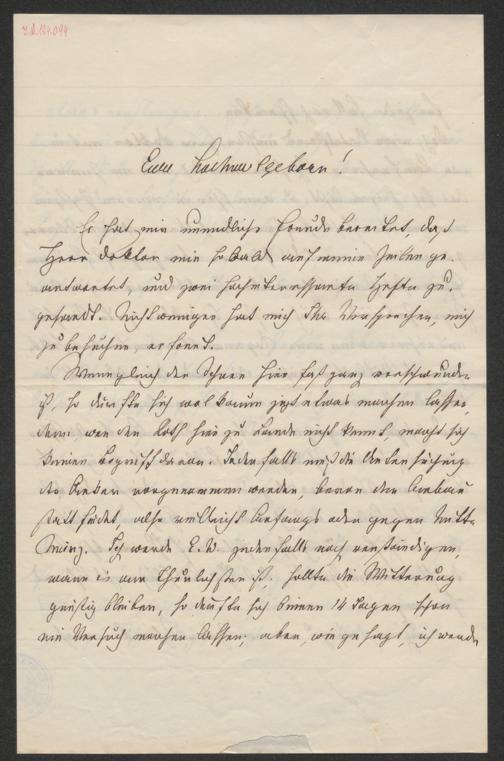 Euer Hochwolgeboren!
Es hat mir unendliche Freude bereitet, daß
Herr Doktor mir so bald auf meine Zeilen ge-
antwortet, und zwei hochinteressante Hefte zu-
gesandt. Nicht weniger hat mich Ihr Versprechen, mich
zu besuchen erfreut.
Wenngleich der Schnee hier fast ganz verschwunden
ist, so dürfte sich wol kaum jetzt etwas machen lassen,
denn wer den Koth hier zu Lande nicht kennt, macht sich
keinen Begriff davon. Jedenfalls muß die Untersuchung
der vorgenommen werden, bevor der Anbau
stattfindet, also vielleicht Anfangs oder gegen Mitte
März. Ich werde E. W. jedenfalls noch verständigen,
wann es am thunlichsten ist, sollte die Witterung
günstig bleiben, so dürfte sich binnen 14 Tagen schon
ein Versuch machen lassen; aber, wie gesagt, ich werde